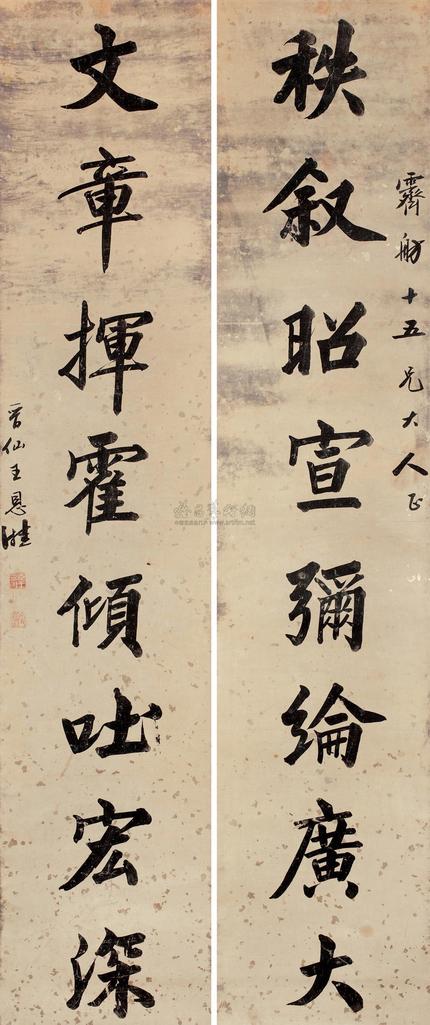 霽舫十五兄大人正
秩叙昭宣彌綸廣大
文章揮霍傾吐宏深
晉仙王恩